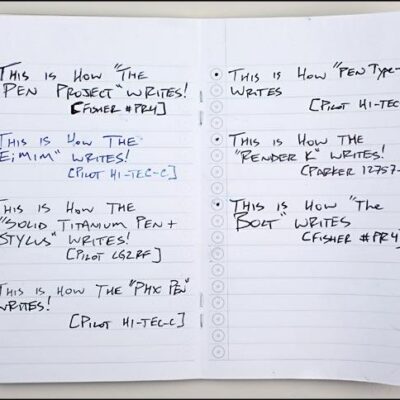 This is How "The
Pen Project" writes!
[Fisher #PR4]
This is How The
"Ti Mini" writes!
[Pilot Hi-Tec-C]
This is How The
"Solid Titanium Pen +
Stylus" writes!
[Pilot LG2RF]
This is How The "PHX Pen"
writes!
[Pilot Hi-Tec-C]
This is How "Pen Type-
writes
[Pilot Hi-Tec-
This is How The
"Render K" writes!
(Parker 12757-
This is How "The
Bolt" writes
[Fisher #PR4]